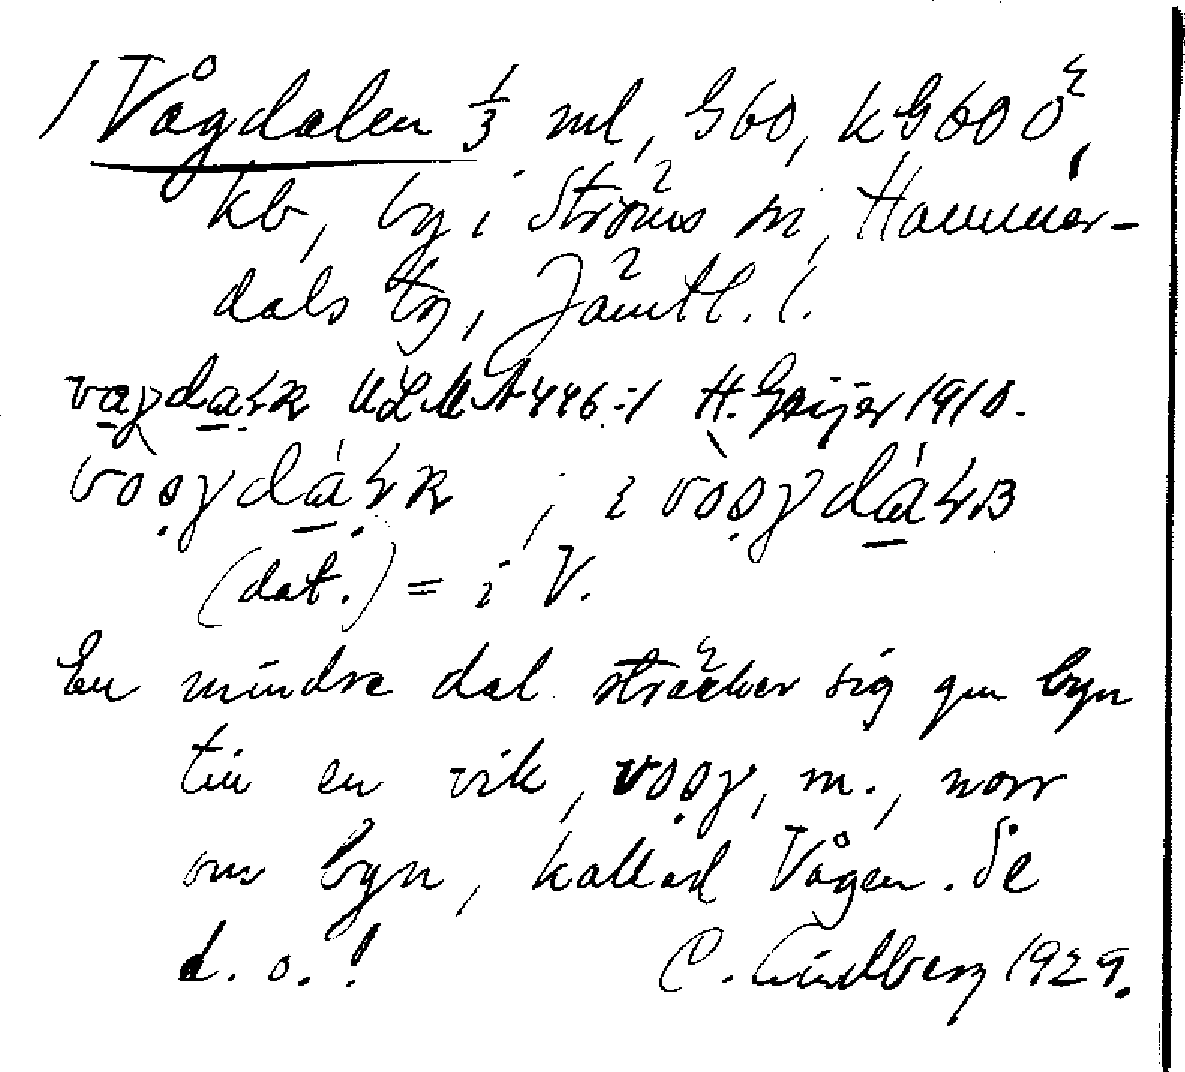 / Vågdalen 1/3 ml, G60, kG600ö,
kb, by i Ströms sn, Hammer-
dals tg, Jämtl. l.
ULMA 446:1 H. Geijer 1910.
; i
(dat.) = i V.
En mindre dal sträcker sig gm byn
till en vik, m., norr
om byn, kallad Vågen. Se
d. o.! C. Lindberg 1929.